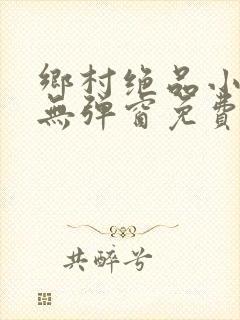 鄉村绝品小
無弹窗免費
共醉兮